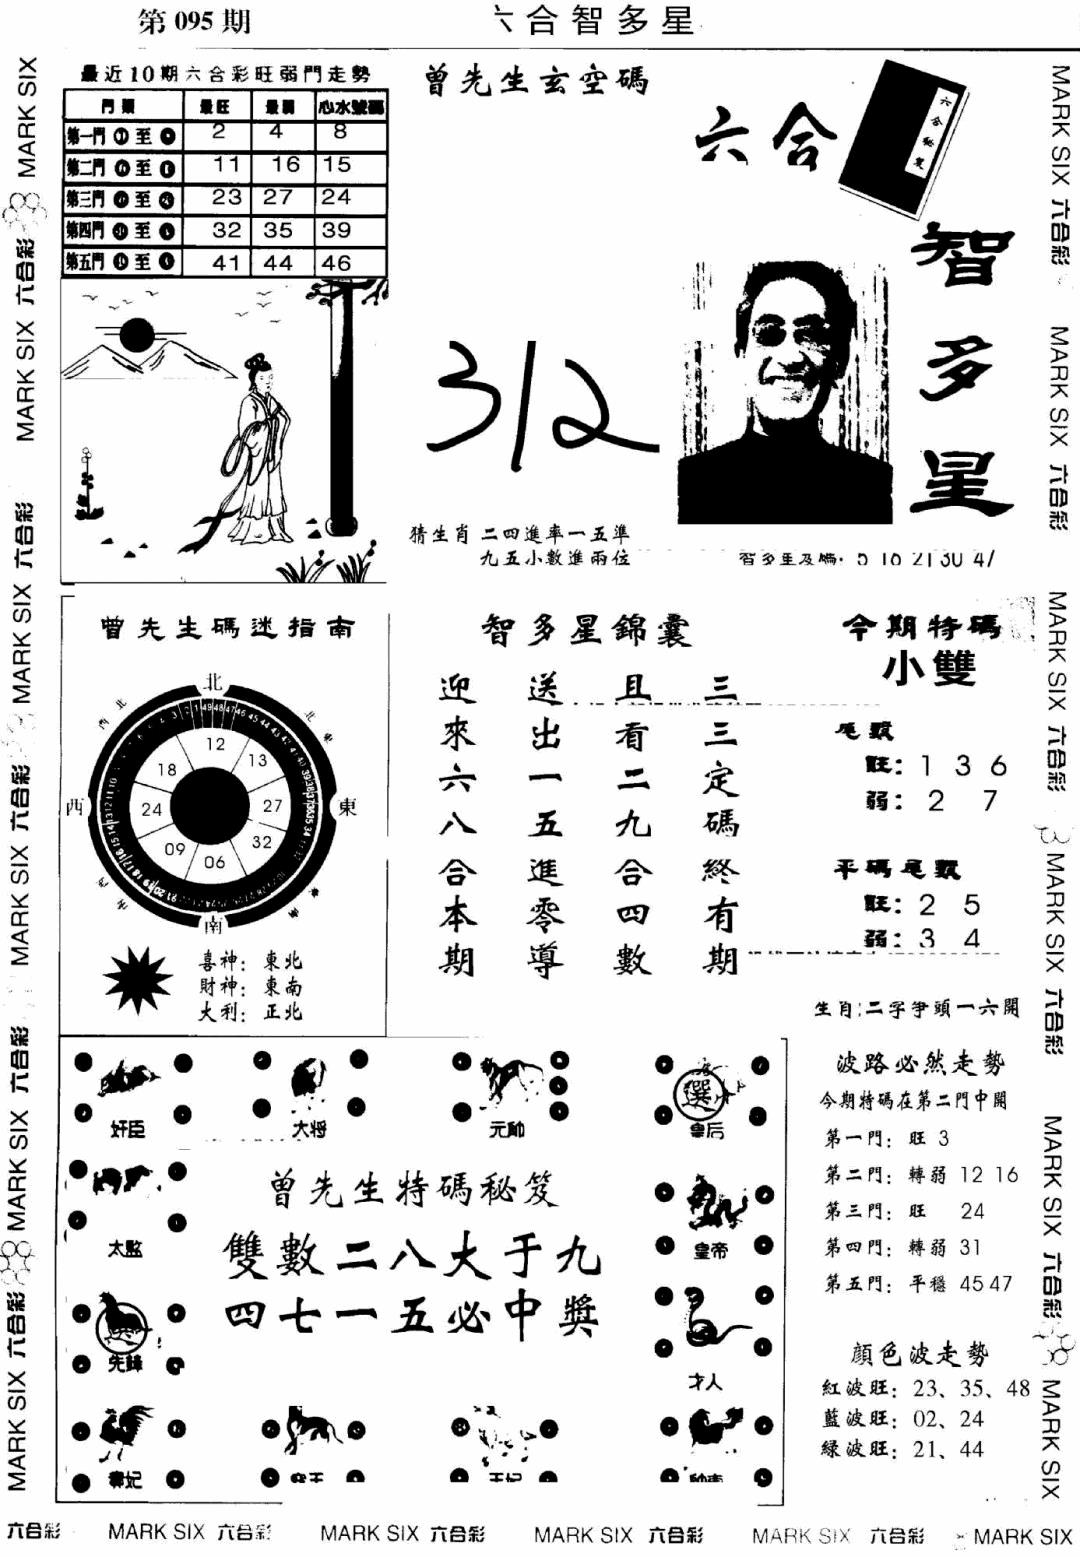 第 095 期
六合智多星
最近10期六合彩旺弱門走勢
門 類 最旺 最弱 心水號碼
第一門 至 2 4 8
第二門 至 11 16 15
第三門 至 23 27 24
第四門 至 32 35 39
第五門 至 41 44 46
曾先生玄空碼
六合
六合秘笈
智多星
312
猜生肖 二四進率一五準
九五小數進兩位
曾先生碼迷指南
北
西北
東北
西
東
南
12
13
27
32
06
09
24
18
喜神：東北
財神：東南
大利：正北
智多星錦囊
迎來六八合本期
送出一五進零導
且看二九合四數
三三定碼終有期
今期特碼
小雙
尾數
旺：1 3 6
弱：2 7
平碼尾數
旺：2 5
弱：3 4
生肖：二字爭頭一六開
奸臣
大将
元帥
選
皇后
太監
皇帝
先鋒
才人
曾先生特碼秘笈
雙數二八大于九
四七一五必中獎
波路必然走勢
今期特碼在第二門中開
第一門：旺 3
第二門：轉弱 12 16
第三門：旺 24
第四門：轉弱 31
第五門：平穩 45 47
顏色波走勢
紅波旺：23、35、48
藍波旺：02、24
綠波旺：21、44
MARK SIX 六合彩 MARK SIX 六合彩 MARK SIX 六合彩 MARK SIX 六合彩 MARK SIX
MARK SIX 六合彩 MARK SIX 六合彩 MARK SIX 六合彩 MARK SIX 六合彩 MARK SIX 六合彩 MARK SIX
六合彩 MARK SIX 六合彩 MARK SIX 六合彩 MARK SIX 六合彩 MARK SIX 六合彩 MARK SIX